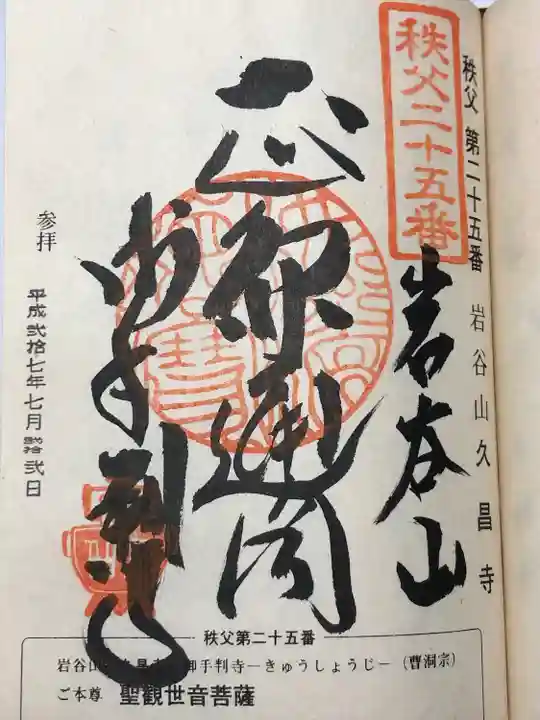 秩父 第二十五番 岩谷山久昌寺
秩父二十五番
岩谷山
正取通閣
お手判寺
参拝 平成弐拾七年七月弐拾弐日
秩父第二十五番
岩谷山 御手判寺ーきゅうしょうじー (曹洞宗)
ご本尊 聖観世音菩薩